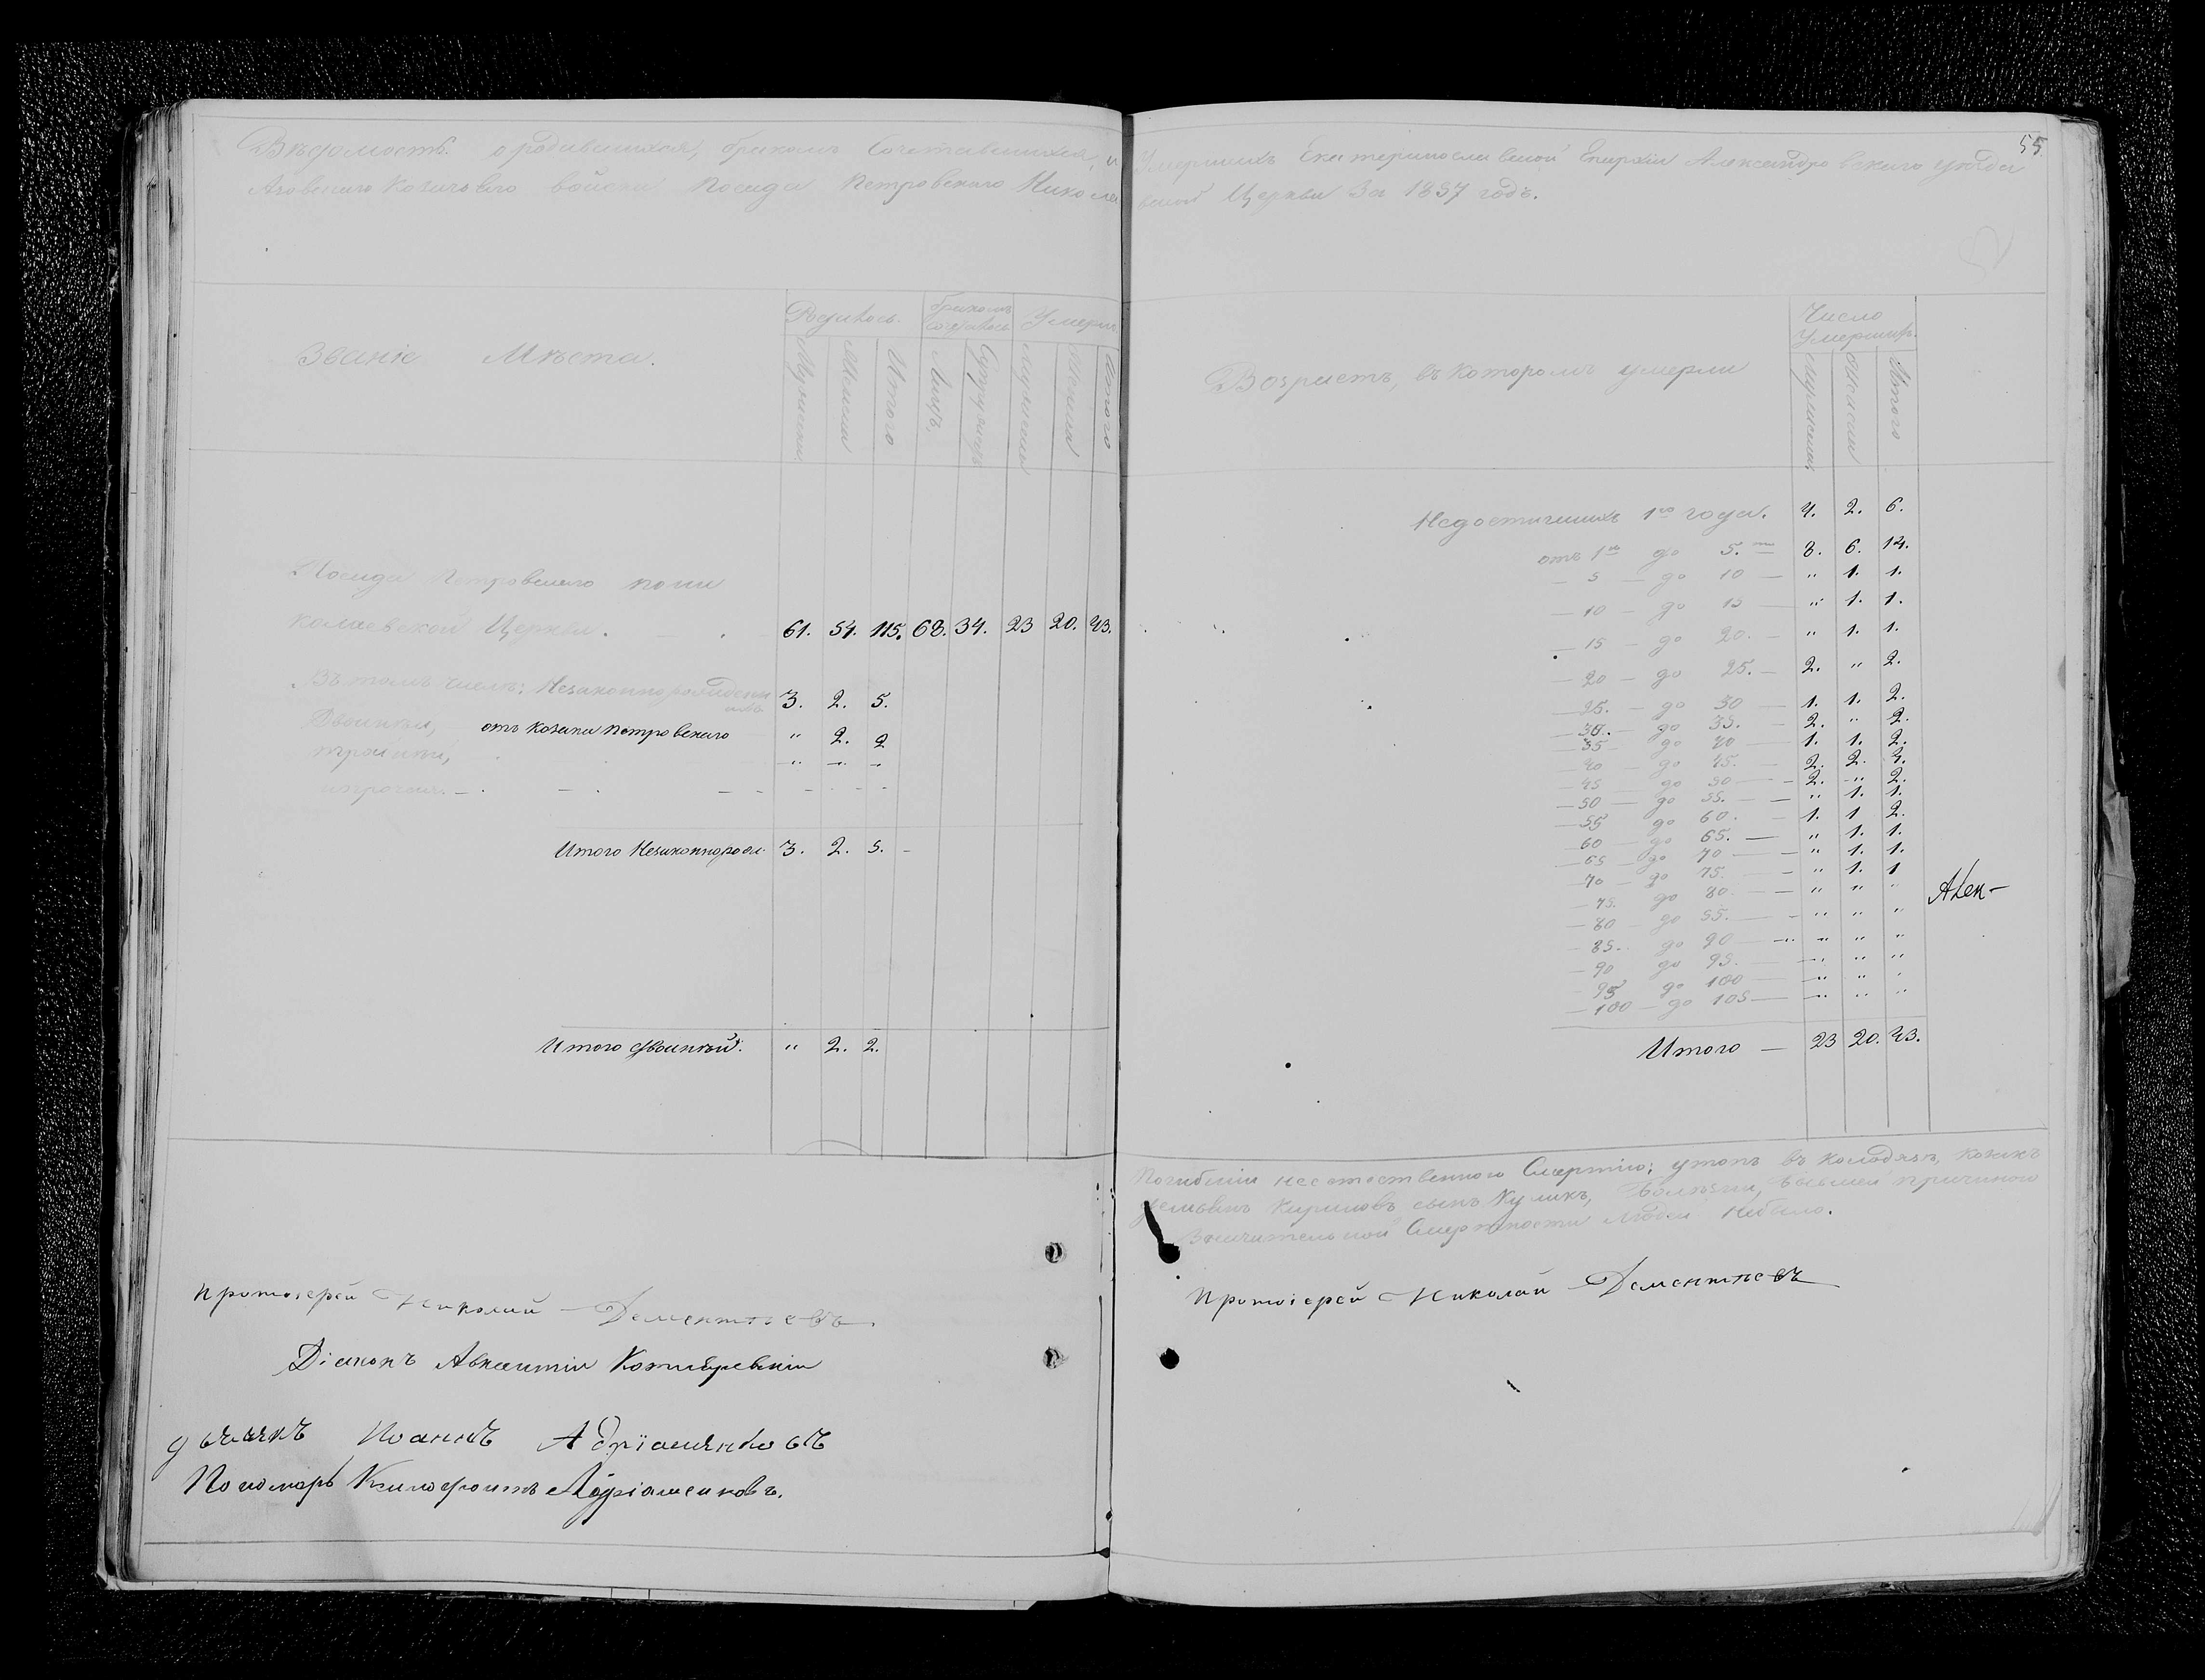 55
Вѣдомость о родившихся, бракомъ Сочетавшихся, и Умершихъ Екатеринославской Епархіи Александровскаго уѣзда
Азовскаго Козачьяго войска Посада Петровскаго Николаевской Церкви За 1837 годъ.
Званіе Мѣста.
Родилось.
Бракомъ сочеталось
Умерло
Мужеска Женска Итого Лицъ Супружствъ Мужеска Женска Итого
Посада Петровскаго Нани
колаевской Церкви. 61. 54. 115. 68. 34. 23 20. 43.
Въ томъ числѣ: Незаконнорожденн
ыхъ 3. 2. 5.
Двойни, отъ Козака Петровскаго " 2. 2
тройни, " " "
и прочия. -
Итого Незаконнорож. 3. 2. 5. -
Итого двойней: " 2. 2.
Протоіерей Николай Дементьевъ
Діаконъ Авксентій Котляревскій
Дьячекъ Иоаннъ Адріашенковъ
Пономарь Ксенофонтъ Адріашенковъ.
Возрастъ, въ которомъ умерли
Число
Умершихъ.
Мужеска Женска Итого
Недостигшихъ 1го года. 4. 2. 6.
отъ 1го до 5.ти 8. 6. 14.
— 5 — до 10 — " 1. 1.
— 10 — до 15 — " 1. 1.
— 15 — до 20. — " 1. 1.
— 20 — до 25. — 2. " 2.
— 25. — до 30 — 1. 1. 2.
— 30. — до 35. — 2. " 2.
— 35 — до 40 — 1. 1. 2.
— 40 — до 45. — 2. 2. 4.
— 45 до 50 — 2. " 2.
— 50 — до 55. — " 1. 1.
— 55 до 60. — 1. 1 2.
— 60 — до 65. — " 1. 1.
— 65 — до 70 — " 1. 1.
— 70 — до 75. — " 1. 1
— 75. до 80. — " " "
— 80 — до 85. — " " "
— 85. до 90 — " " "
— 90 до 95. — " " "
— 95 до 100 — " " "
— 100 — до 105 — " " "
Итого — 23 20. 43.
Погибшій неестественною Смертію; утопъ въ колодязѣ, козакъ
Демьянъ Кириловъ сынъ Куликъ, Болѣзни, бывшей причиною
Значительной Смертности людей небыло.
Протоіерей Николай Дементьевъ